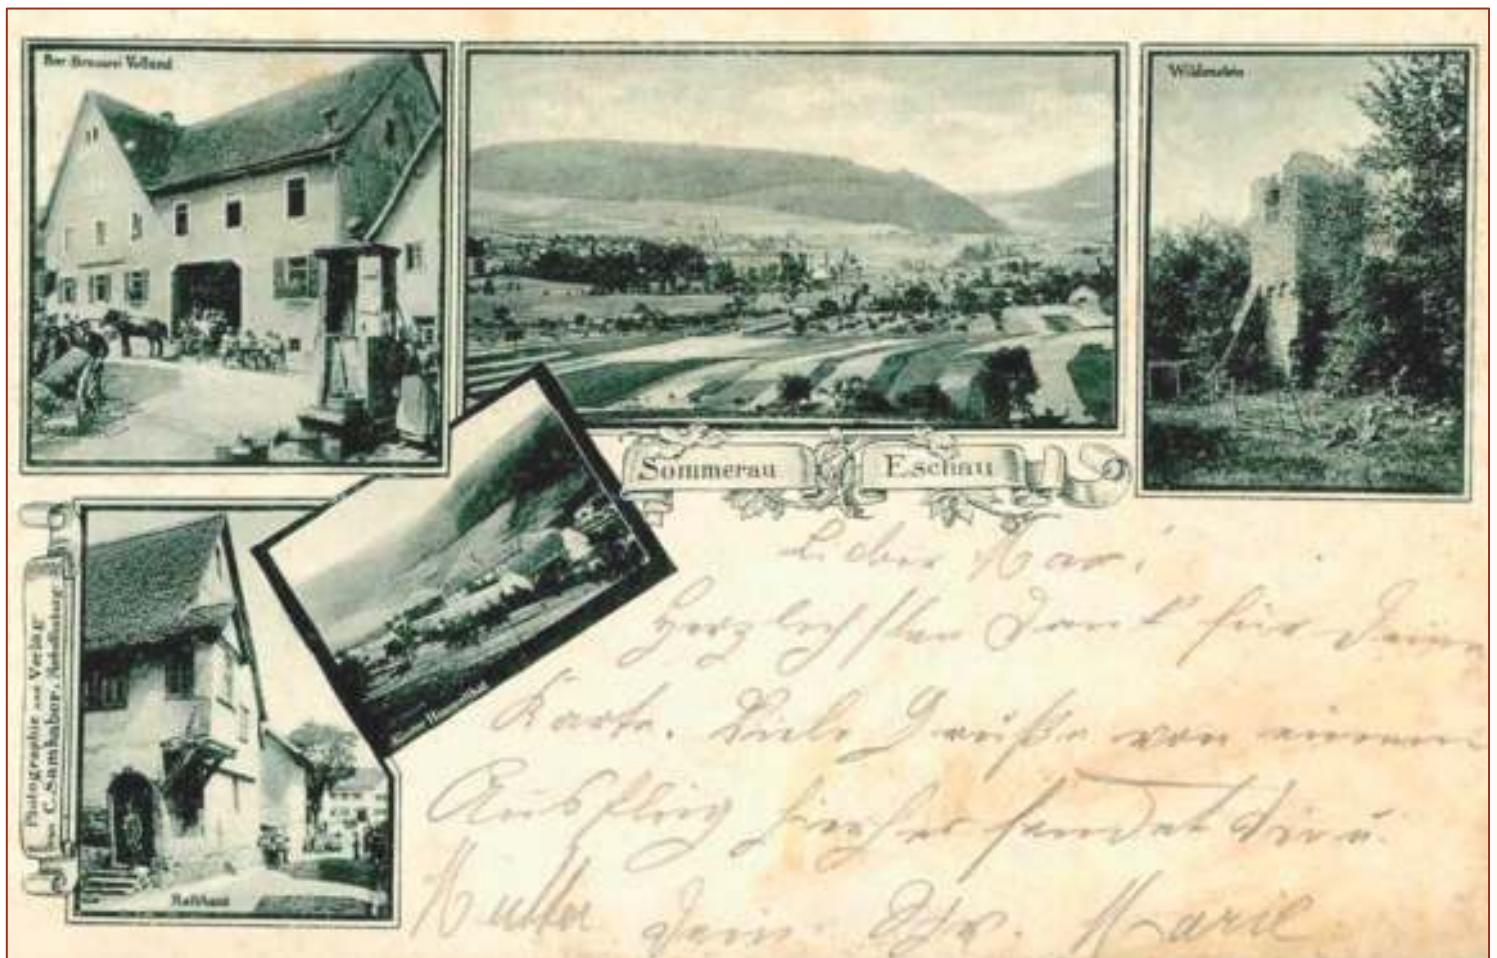 Bier-Brauerei Volland
Wildenstein
Sommerau Eschau
Himmelthal
Photographie und Verlag
von C. Samhaber, Aschaffenburg
Rathaus
Lieber Max!
Herzlichsten Dank für Deine
Karte. Viele Grüße von einem
Ausflug hierher sendet Dir u.
Mutter Dein Schw. Marie